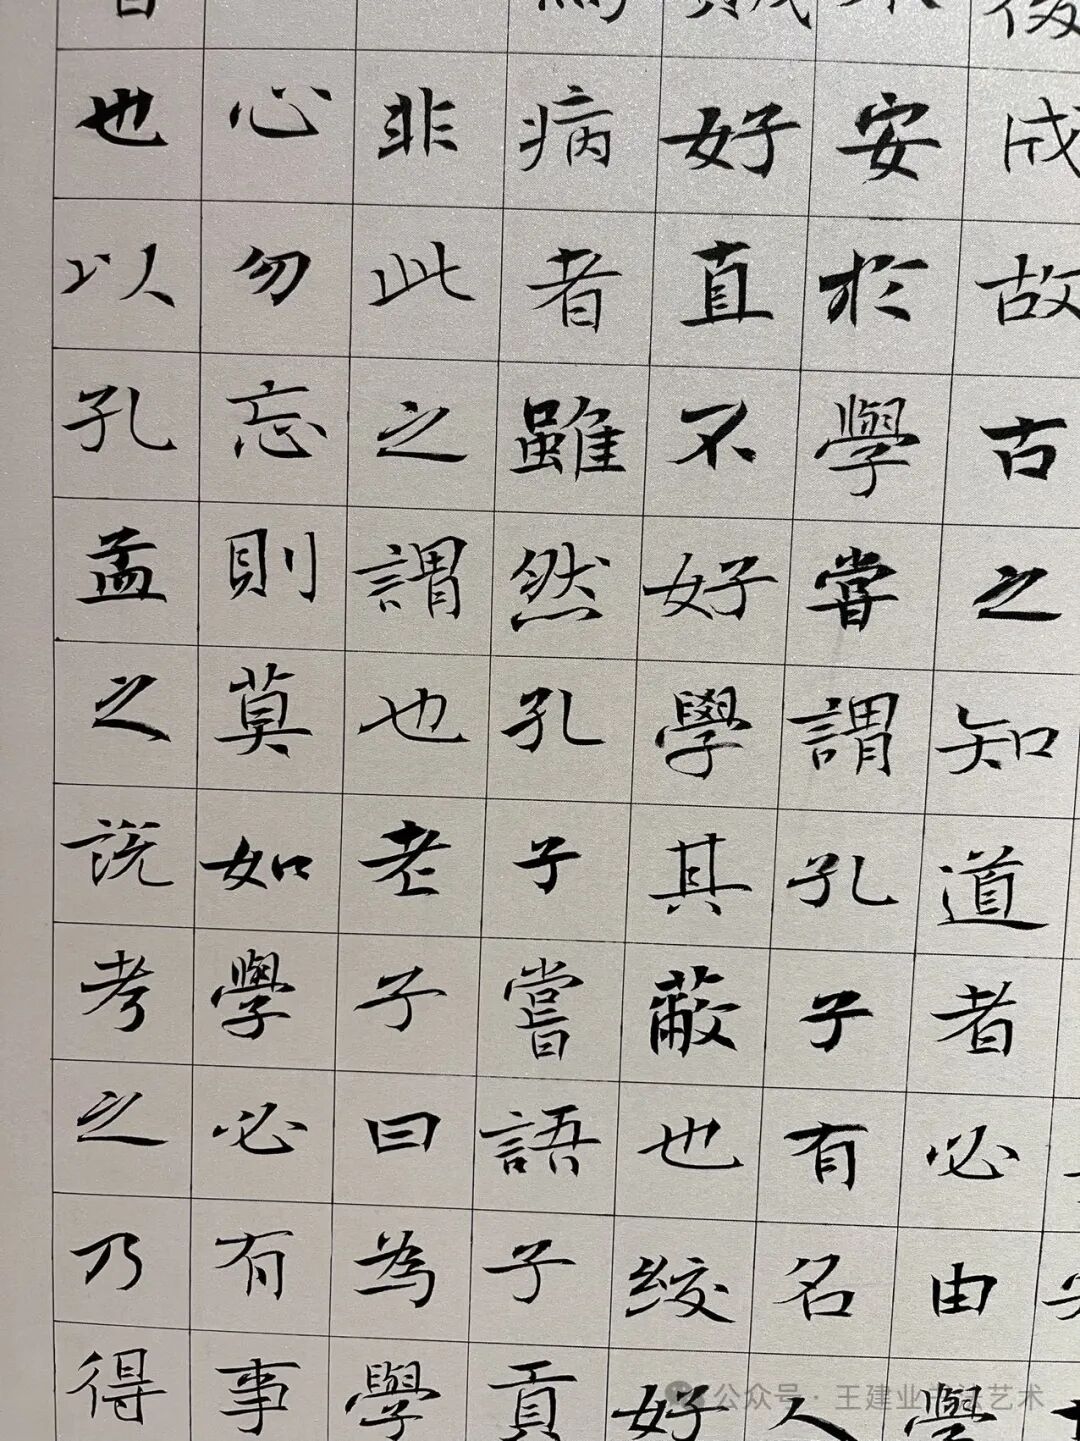 成故古之知道者必由學
安於學嘗謂孔子有名人
好直不好學其蔽也絞好
病者雖然孔子嘗語子貢
非此之謂也老子曰為學
心勿忘則莫如學必有事
也以孔孟之說考之乃得
公众号·王建业
艺术